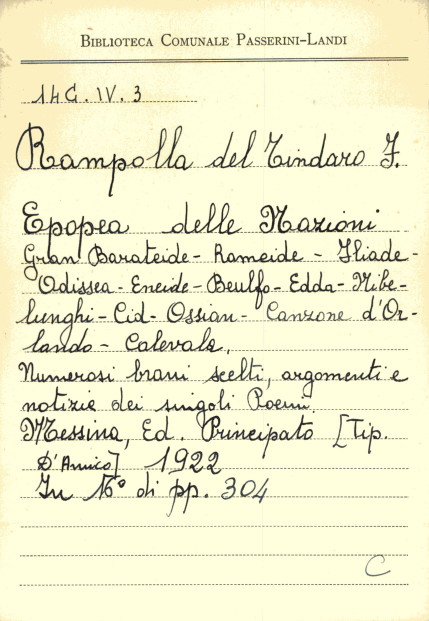 BIBLIOTECA COMUNALE PASSERINI-LANDI
14G.IV.3
Rampolla del Tindaro F.
Epopea delle Nazioni
Gran Barateide - Rameide - Iliade -
Odissea - Eneide - Beulfo - Edda - Nibe-
lunghi - Cid - Ossian - Canzone d'Or-
lando - Calevala.
Numerosi brani scelti, argomenti e
notizie dei singoli Poemi.
Messina, Ed. Principato [Tip.
D'Amico] 1922
In 16° di pp. 304
C